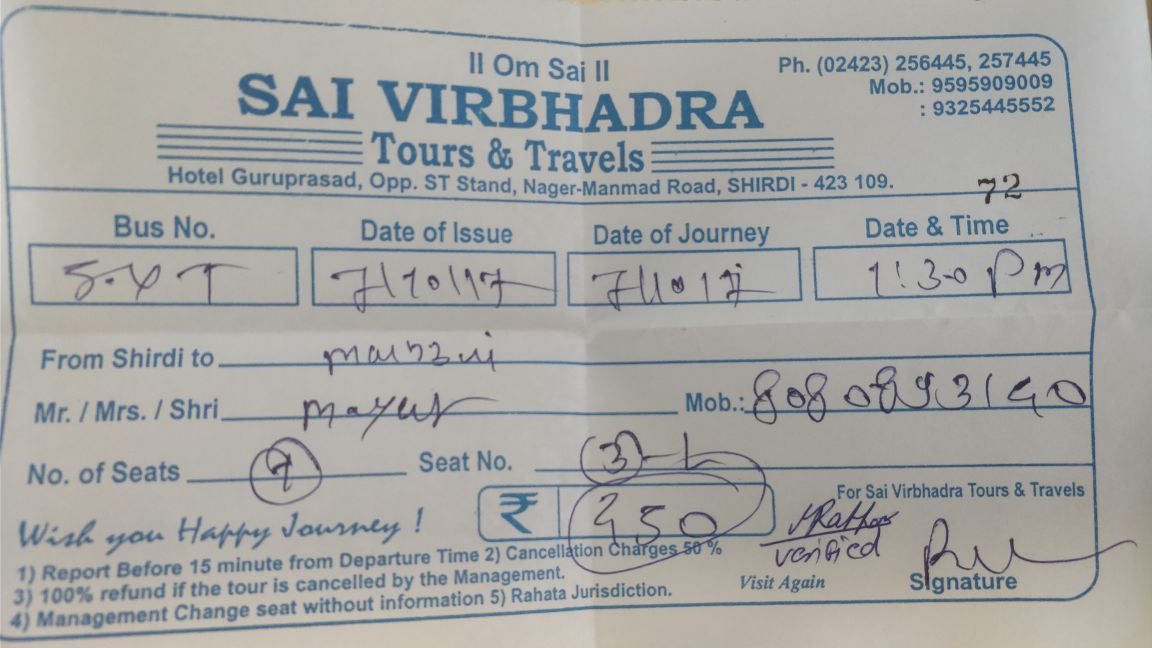 II Om Sai II
Ph. (02423) 256445, 257445
Mob.: 9595909009
: 9325445552
SAI VIRBHADRA
Tours & Travels
Hotel Guruprasad, Opp. ST Stand, Nager-Manmad Road, SHIRDI - 423 109.
72
Bus No. Date of Issue Date of Journey Date & Time
7/10/17 7/10/17 1:30 PM
From Shirdi to
Mr. / Mrs. / Shri Mayur Mob.:
No. of Seats Seat No. (3)-L
₹ 450
For Sai Virbhadra Tours & Travels
Wish you Happy Journey !
verified
1) Report Before 15 minute from Departure Time 2) Cancellation Charges 50 %
3) 100% refund if the tour is cancelled by the Management.
4) Management Change seat without information 5) Rahata Jurisdiction.
Visit Again
Signature